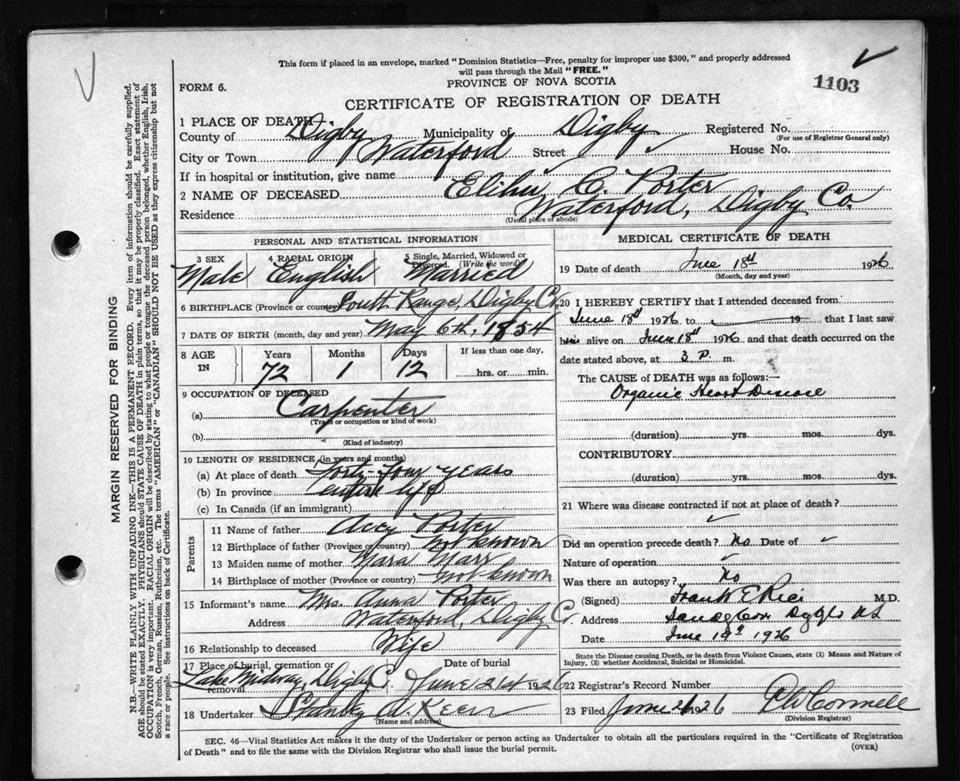 This form if placed in an envelope, marked "Dominion Statistics—Free, penalty for improper use $300," and properly addressed
will pass through the Mail "FREE."
FORM 6.
PROVINCE OF NOVA SCOTIA
1103
CERTIFICATE OF REGISTRATION OF DEATH
1 PLACE OF DEATH
County of Digby Municipality of Digby Registered No.
(For use of Registrar General only)
City or Town Waterford Street House No.
If in hospital or institution, give name
2 NAME OF DECEASED Elihu C. Porter
Residence Waterford, Digby Co
(Usual place of abode)
PERSONAL AND STATISTICAL INFORMATION
3 SEX Male
4 RACIAL ORIGIN English
5 Single, Married, Widowed or Divorced. (Write the word) Married
6 BIRTHPLACE (Province or country) South Range, Digby Co.
7 DATE OF BIRTH (month, day and year) May 6th, 1854
8 AGE IN Years 72 Months 1 Days 12 If less than one day, hrs. or min.
9 OCCUPATION OF DECEASED
(a) Carpenter
(Trade or occupation or kind of work)
(b)
(Kind of industry)
10 LENGTH OF RESIDENCE (in years and months)
(a) At place of death Forty-four years
(b) In province entire life
(c) In Canada (if an immigrant)
Parents
11 Name of father Porter
12 Birthplace of father (Province or country) not known
13 Maiden name of mother Marr
14 Birthplace of mother (Province or country) not known
15 Informant's name Mrs. Anna Porter
Address Waterford, Digby C.
16 Relationship to deceased Wife
17 Place of burial, cremation or removal Lake Midway, Digby C. Date of burial June 21st 1926
18 Undertaker Stanley A. Keen
(Name and address)
MEDICAL CERTIFICATE OF DEATH
19 Date of death June 18th 1926
(Month, day and year)
20 I HEREBY CERTIFY that I attended deceased from
June 18th 1926 to 19 that I last saw
him alive on June 18th 1926 and that death occurred on the
date stated above, at 3 P. m.
The CAUSE OF DEATH was as follows:—
Organic Heart Disease
(duration) yrs. mos. dys.
CONTRIBUTORY
(duration) yrs. mos. dys.
21 Where was disease contracted if not at place of death?
Did an operation precede death? No Date of
Nature of operation
Was there an autopsy? No
(Signed) Frank E Rice M.D.
Address Sandy Cove Digby NS
Date June 19th 1926
State the Disease causing Death, or in death from Violent Causes, state (1) Means and Nature of
Injury, (2) whether Accidental, Suicidal or Homicidal.
22 Registrar's Record Number
23 Filed June 1926 Connell
(Division Registrar)
SEC. 46—Vital Statistics Act makes it the duty of the Undertaker or person acting as Undertaker to obtain all the particulars required in the "Certificate of Registration
of Death" and to file the same with the Division Registrar who shall issue the burial permit.
(OVER)
MARGIN RESERVED FOR BINDING
N.B.—WRITE PLAINLY WITH UNFADING INK—THIS IS A PERMANENT RECORD. Every item of information should be carefully supplied.
AGE should be stated EXACTLY. PHYSICIANS should STATE CAUSE OF DEATH in plain terms, so that it may be properly classified. Exact statement of
OCCUPATION is very important. RACIAL ORIGIN will be described by stating to what people or tongue the deceased person belonged, whether English, Irish,
Scotch, French, German, Russian, Ruthenian, etc. The terms "AMERICAN" or "CANADIAN" SHOULD NOT BE USED as they express citizenship but not
a race or people. See instructions on back of Certificate.